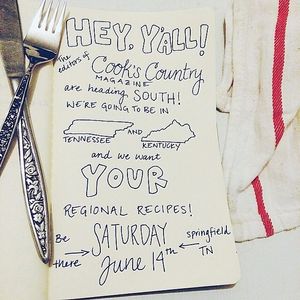 HEY, Y'ALL!
The editors of
Cook's Country
MAGAZINE
are heading SOUTH!
WE'RE GOING TO BE IN
TENNESSEE AND KENTUCKY
and we want
YOUR
REGIONAL RECIPES!
Be there → SATURDAY ← springfield TN
June 14th